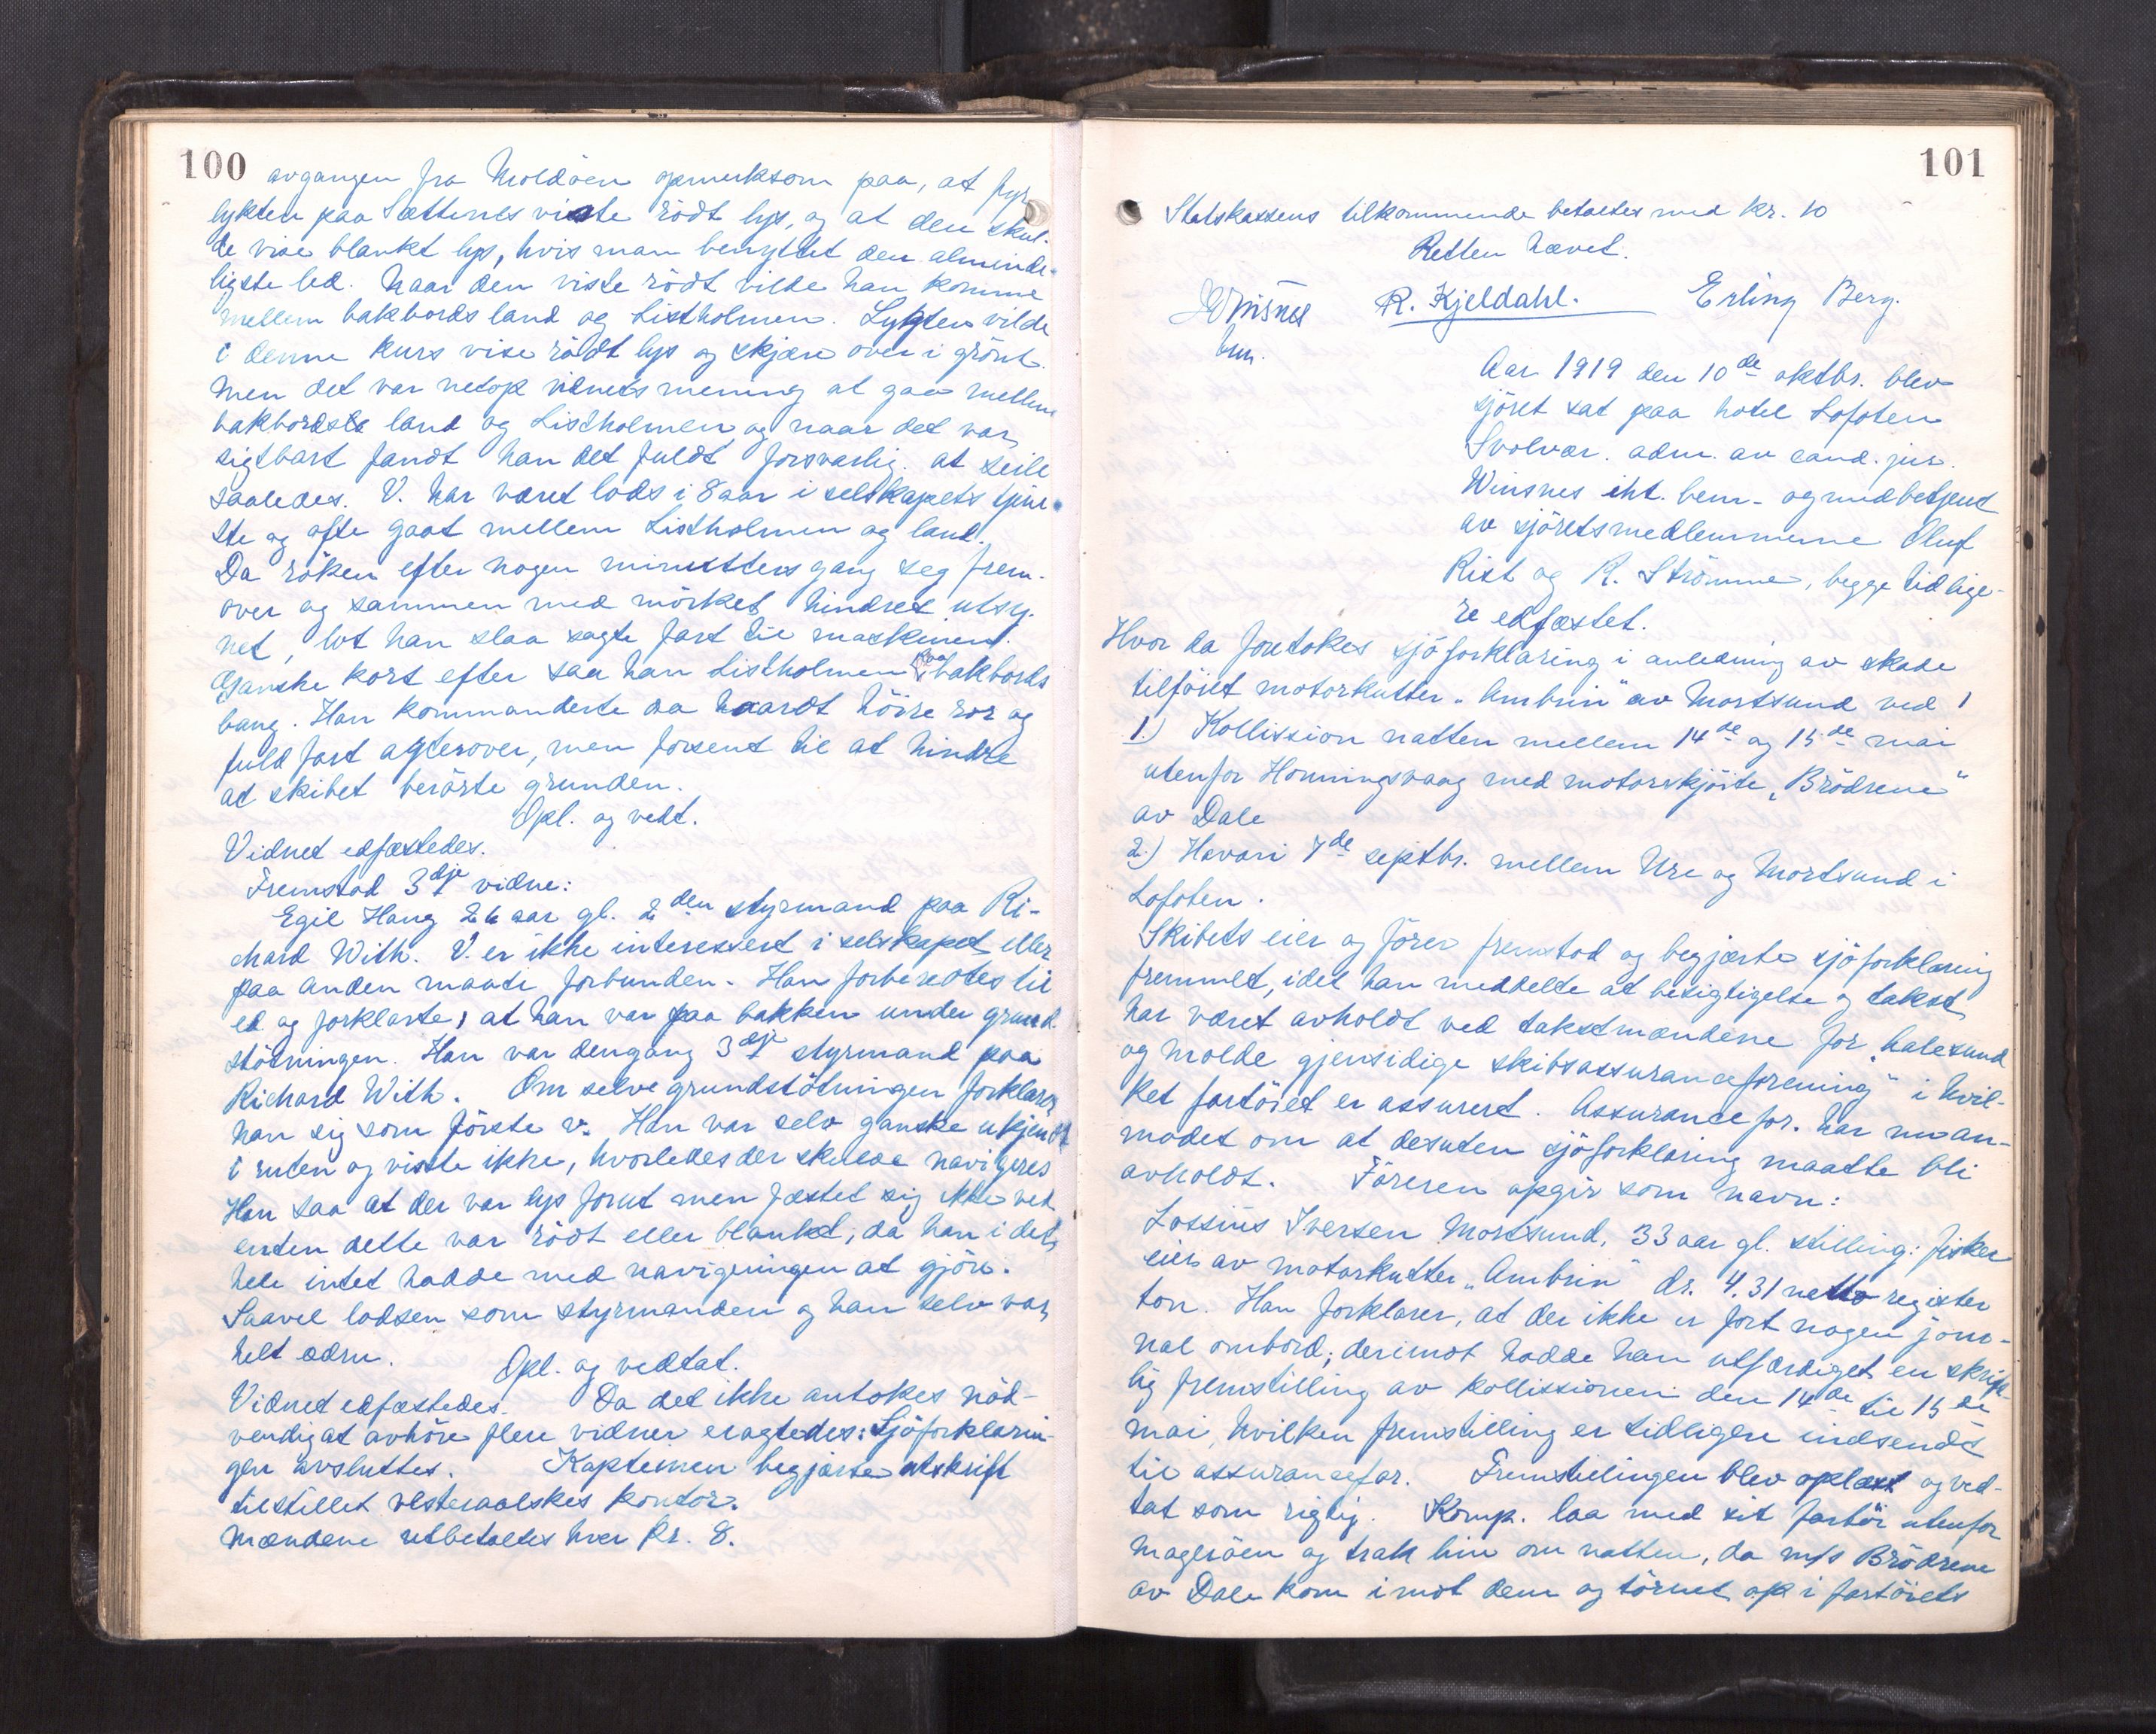 100
avgangen fra Moldöen opmerksom paa, at fyr
lykten paa Sættenes viste rödt lys, og at den skul-
de vise blankt lys, hvis man benyttet den alminde-
ligste led. Naar den viste rödt vilde han komme
mellem bakbords land og Listholmen. Lygten vilde
i denne kurs vise rödt lys og skjære over i grönt.
Men det var netop vidnets mening at gaa mellem
bakbords land og Listholmen og naar det var
sigtbart fandt han det fuldt forsvarlig at seile
saaledes. V. har været lods i 8 aar i selskapets tjene-
ste og ofte gaat mellem Listholmen og land.
Da röken efter nogen minutters gang seg frem-
over og sammen med mörket hindret utsy-
net, lot han slaa sagte fart til maskinen.
Ganske kort efter saa han Listholmen paa bakbords
baug. Han kommanderte da haardt höire ror og
fuld fart agterover, men forsent til at hindre
at skibet berörte grunden.
Opl. og vedt.
Vidnet edfæstedes.
Fremstod 3dje vidne:
Egil Haug 26 aar gl. 2den styrmand paa Ri-
chard With. V. er ikke interessert i selskapet eller
paa anden maate forbunden. Han forberedtes til
ed og forklarte, at han var paa bakken under grund
stötningen. Han var dengang 3dje styrmand paa
Richard With. Om selve grundstötningen forklarer
han sig som förste v. Han var selv ganske ukjendt
i ruten og visste ikke, hvorledes der skulde navigeres
Han saa at der var lys forut men fæstet sig ikke ved
enten dette var rödt eller blankt, da han i det
hele intet hadde med navigeringen at gjöre.
Saavel lodsen som styrmanden og han selv var
helt ædru.
Opl. og vedtat.
Vidnet edfæstedes. Da det ikke antokes nöd-
vendig at avhöre flere vidner eragtedes: Sjöforklarin-
gen avsluttes. Kapteinen begjærte utskrift
tilstillet vesteraalskes kontor.
Mændene utbetaltes hver kr. 8.
101
Statskassens tilkommende betaltes med kr. 10
Retten hævet.
Winsnes R. Kjeldahl. Erling Berg.
bem.
Aar 1919 den 10de oktbr. blev
sjöret sat paa hotel Lofoten
Svolvær. adm. av cand. jur.
Winsnes iht. bem. og medbetjent
av sjöretsmedlemmene Oluf
Rist og R. Strömme, begge tidlige-
re edfæstet.
Hvor da foretokes sjöforklaring i anledning av skade
tilföiet motorkutter "Ambrin" av Mortsund ved
1.) Kollission natten mellem 14de og 15de mai
utenfor Honningsvaag med motorskjöite "Brödrene"
av Dale
2.) Havari 7de septbr. mellem Ure og Mortsund i
Lofoten.
Skibets eier og förer fremstod og begjærte sjöforklaring
fremmet, idet han meddelte at besigtigelse og takst
har været avholdt ved takstmændene for "Aalesund
og Molde gjensidige skibsassuranceforening" i hvil-
ket fartöiet er assureret. Assurancefor. har nu an-
modet om at desuten sjöforklaring maatte bli
avholdt. Föreren opgir som navn:
Lossius Iversen Mortsund, 33 aar gl. stilling: fisker
eier av motorkutter "Ambrin" dr. 4.31 netto register
ton. Han forklarer, at der ikke er fört nogen jour-
nal ombord; derimot hadde han utfærdiget en skrift-
lig fremstilling av kollissionen den 14de til 15de
mai, hvilken fremstilling er tidligere indsendt
til assurancefor. Fremstillingen blev oplæst og ved-
tat som rigtig. Komp. laa med sit fartöi utenfor
Mageröen og trak line om natten, da m/s Brödrene
av Dale kom imot dem og törnet op i fartöiets